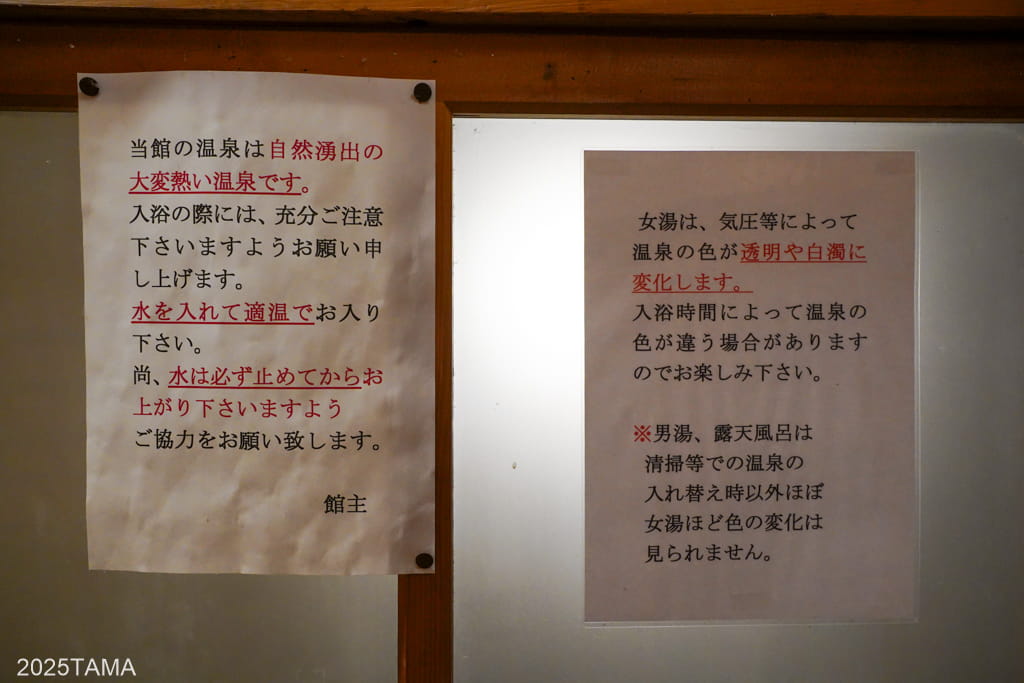 当館の温泉は自然湧出の
大変熱い温泉です。
入浴の際には、充分ご注意
下さいますようお願い申
し上げます。
水を入れて適温でお入り
下さい。
尚、水は必ず止めてからお
上がり下さいますよう
ご協力をお願い致します。
館主
女湯は、気圧等によって
温泉の色が透明や白濁に
変化します。
入浴時間によって温泉の
色が違う場合があります
のでお楽しみ下さい。
※男湯、露天風呂は
清掃等での温泉の
入れ替え時以外ほぼ
女湯ほど色の変化は
見られません。
2025TAMA